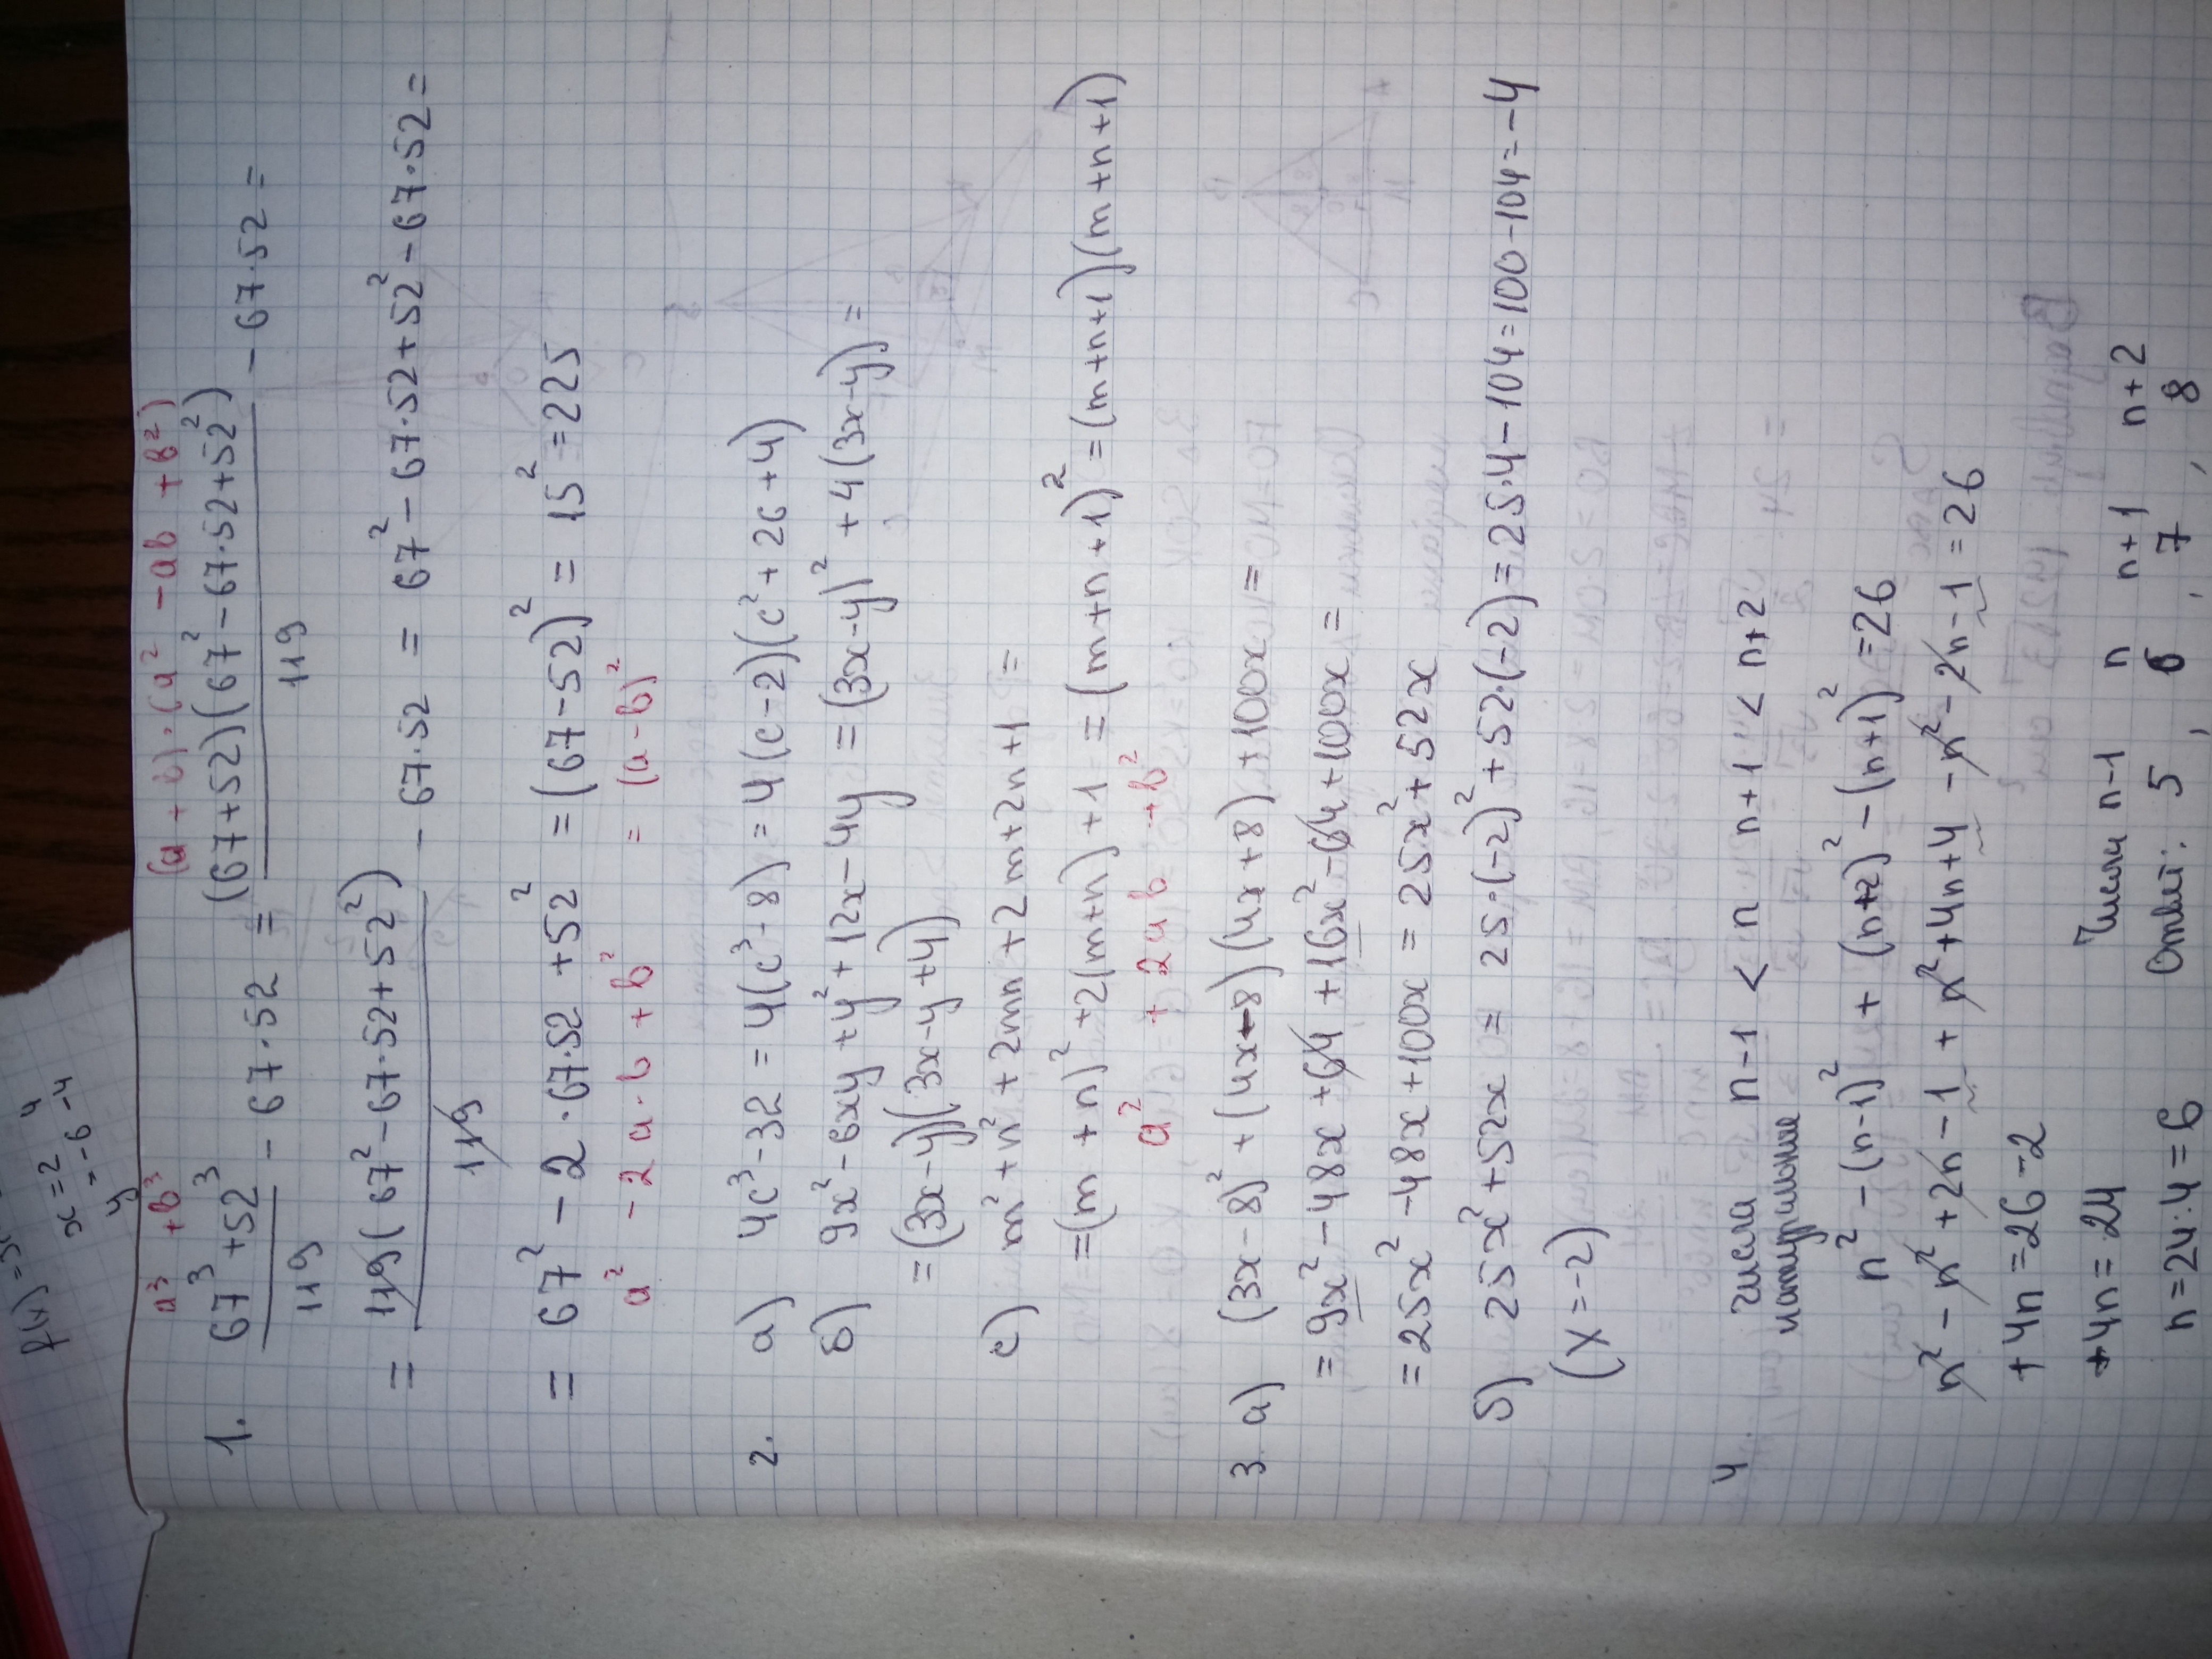 f(x) =
x = 2 4
y = -6 -4
a³ + b³ (a + b)·(a² - ab + b²)
1. (67³ + 52³)/119 - 67·52 = ((67+52)(67² - 67·52 + 52²))/119 - 67·52 =
= (119(67² - 67·52 + 52²))/119 - 67·52 = 67² - 67·52 + 52² - 67·52 =
= 67² - 2·67·52 + 52² = (67-52)² = 15² = 225
a² - 2 a·b + b² = (a-b)²
2. а) 4c³ - 32 = 4(c³ - 8) = 4(c-2)(c² + 2c + 4)
б) 9x² - 6xy + y² + 12x - 4y = (3x-y)² + 4(3x-y) =
= (3x-y)(3x-y+4)
c) m² + n² + 2mn + 2m + 2n + 1 =
= (m+n)² + 2(m+n) + 1 = (m+n+1)² = (m+n+1)(m+n+1)
a² + 2ab + b²
3. а) (3x-8)² + (4x-8)(4x+8) + 100x =
= 9x² - 48x + 64 + 16x² - 64 + 100x =
= 25x² - 48x + 100x = 25x² + 52x
б) 25x² + 52x = 25·(-2)² + 52·(-2) = 25·4 - 104 = 100 - 104 = -4
(x = -2)
4. числа n-1 < n n+1 < n+2
натуральные
n² - (n-1)² + (n+2)² - (n+1)² = 26
n² - n² + 2n - 1 + n² + 4n + 4 - n² - 2n - 1 = 26
+4n = 26 - 2
+4n = 24 Числа n-1 n n+1 n+2
n = 24:4 = 6 Ответ: 5, 6, 7, 8